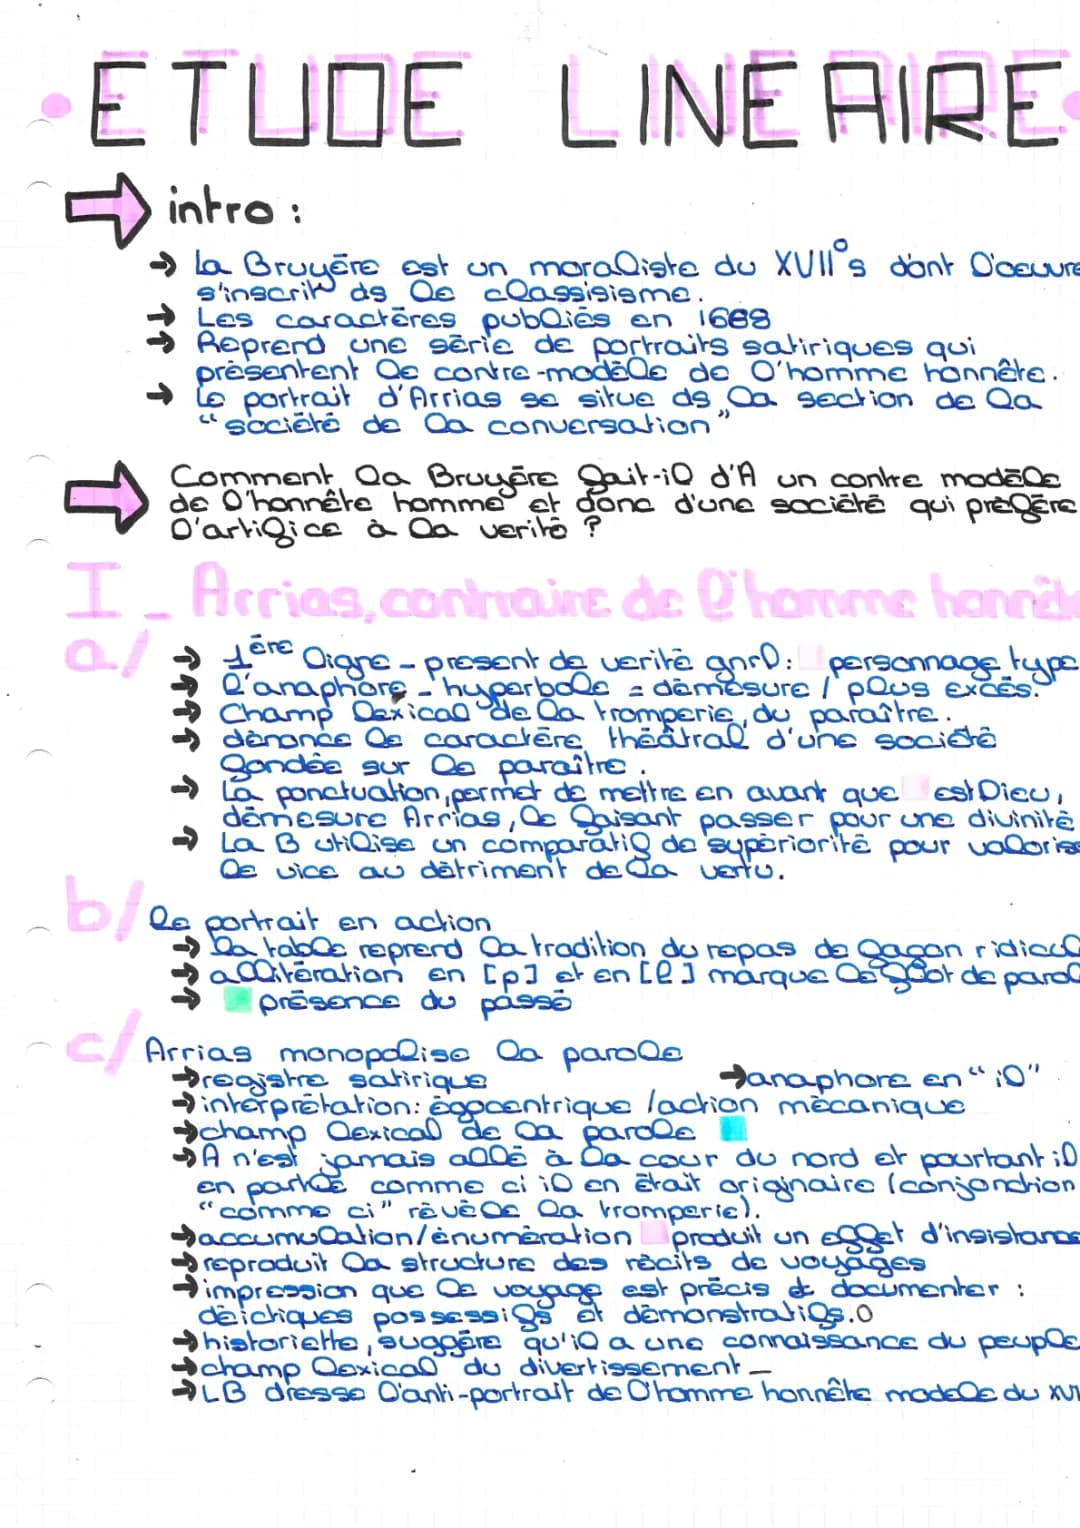 ETUDE LINEAIRE
intro :
→ La Bruyère est un moraliste du XVII°s dont l'oeuvre
s'inscrit ds le classisisme.
→ Les caractères publiés en 1688
→ Reprend une série de portraits satiriques qui
présentent le contre-modèle de l'homme honnête.
→ Le portrait d'Arrias se situe ds la section de la
"société de la conversation"
Comment la Bruyère fait-il d'A un contre modèle
de l'honnête homme et donc d'une société qui préfère
l'artifice à la verité ?
I_ Arrias, contraire de l'homme honnête
a/
→ 1ère ligne - present de verité gnrl: personnage type
→ l'anaphore - hyperbole = démesure / plus excés.
→ Champ lexical de la tromperie, du paraître.
→ dénonce le caractère théâtral d'une société
fondée sur le paraître.
→ La ponctuation, permet de mettre en avant que est Dieu,
démesure Arrias, le faisant passer pour une divinité
→ La B utilise un comparatif de supériorité pour valorise
le vice au détriment de la vertu.
b/ le portrait en action
→ la table reprend la tradition du repas de façon ridicul
→ allitération en [p] et en [l] marque le flot de parol
→ présence du passé
c/ Arrias monopolise la parole
→ registre satirique → anaphore en "il"
→ interprétation: égocentrique /action mécanique
→ champ lexical de la parole
→ A n'est jamais allé à la cour du nord et pourtant il
en parle comme ci il en était originaire (conjonction
"comme ci" révèle la tromperie).
→ accumulation/énumération produit un effet d'insistance
→ reproduit la structure des récits de voyages
→ impression que le voyage est précis et documenter :
déictiques possessifs et démonstratifs.
→ historiette, suggère qu'il a une connaissance du peuple
→ champ lexical du divertissement -
→ LB dresse l'anti-portrait de l'homme honnête modele du XVI